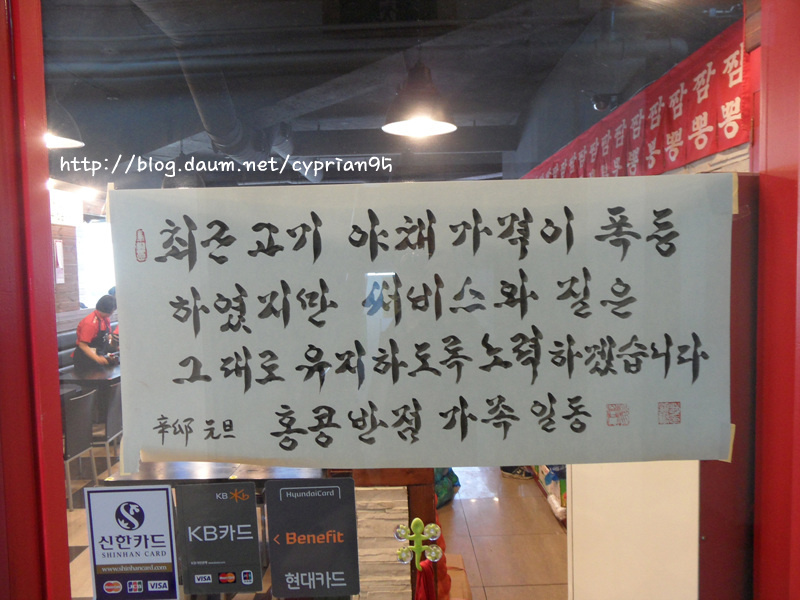 http://blog.daum.net/cyprian95
최근 고기 야채 가격이 폭등
하였지만 써비스와 질은
그대로 유지하도록 노력하겠습니다
辛卯 元旦 홍콩반점 가족 일동
짬 짬 짬 짬 짬
뽕 뽕 뽕 뽕
신한카드
SHINHAN CARD
www.shinhancard.com
VISA
KB
KB카드
VISA
HyundaiCard
Benefit
현대카드